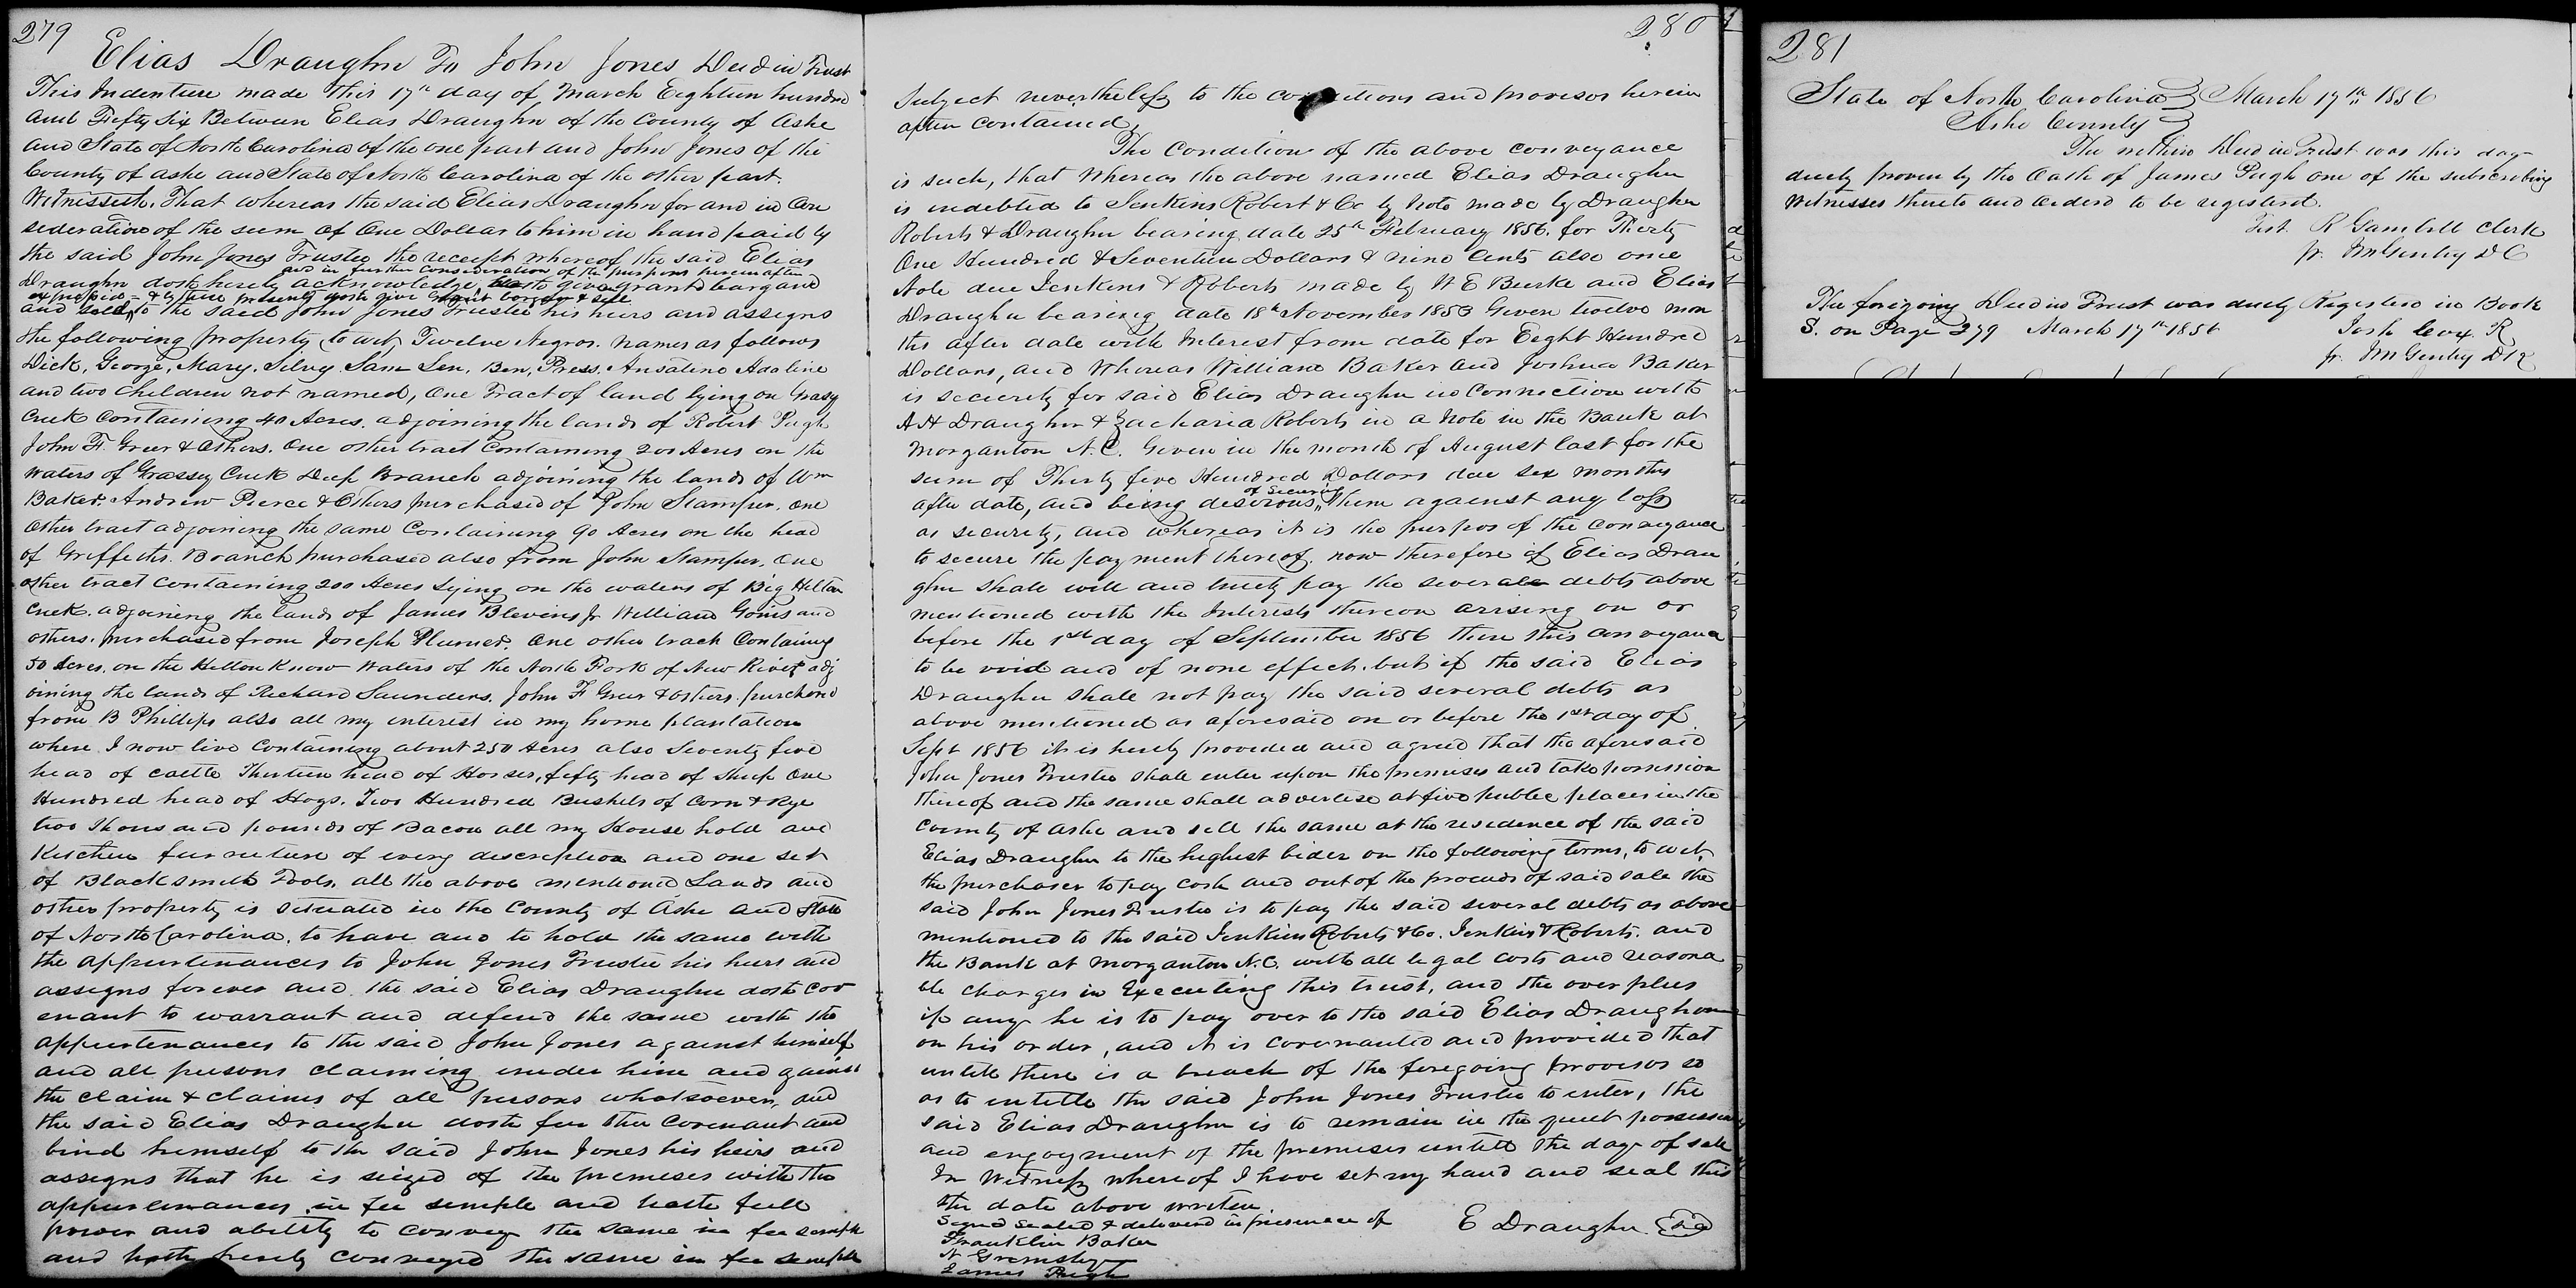 279
Elias Draughn To John Jones Deed in Trust
This Indenture made this 17th day of March Eighteen hundred
and Fifty Six Between Elias Draughn of the County of Ashe
and State of North Carolina of the one part and John Jones of the
County of ashe and State of North Carolina of the other part.
Witnesseth. That whereas the said Elias Draughn for and in Con
sideration of the sum of One Dollar to him in hand paid by
the said John Jones Trustee the receipt whereof the said Elias
and in further consideration of the purposes herein after
Draughn doth hereby acknowledge, give grant bargand
expressed - & by these presents doth give grant bargan & sell
and sold, to the said John Jones Trustee his heirs and assigns
the following property to wit, Twelve Negros. names as follows
Dick, George, Mary, Silvy Sam Len, Ben, Press, Ansaline Adaline
and two children not named, One Tract of land lying on Grasy
Creek Containing 40 Acres. adjoining the lands of Robert Pugh
John F. Greer & Others. One other tract Containing 200 Acres on the
Waters of Grassy Creek Deep Branch adjoining the lands of Wm
Baker. Andrew Pierce & Others purchased of John Stamper. one
other tract adjoining the same Containing 90 Acres on the head
of Griffeths. Branch purchased also from John Stamper, One
other tract containing 200 Acres Lying on the waters of Big Helton
Creek. adjoining the lands of James Blevins Jr William Goins and
others. purchased from Joseph Plumer. One other track Containing
50 Acres. on the Helton Know Waters of the North Fork of New River adj
oining the lands of Richard Saunders, John F Greer & others. purchased
from B Phillips also all my interest in my home plantation
where I now live Containing about 250 Acres also Seventy five
head of cattle Thirteen head of Horses, fifty head of Sheep One
Hundred head of Hogs. Two Hundred Bushels of Corn & Rye
two Thousand pounds of Bacon all my House hold and
Kitchen furneture of every description and one set
of Blacksmith Tools. all the above mentioned Lands and
other property is setuated in the County of Ashe and State
of North Carolina. to have and to hold the same with
the appurtenances to John Jones Trustee his heirs and
assigns forever and the said Elias Draughn doth cov
enant to warrant and defend the same with the
appurtenances to the said John Jones against himself
and all persons claiming under him and against
the claim & claims of all persons whatsoever, and
the said Elias Draughn doth fur ther Covenant and
bind himself to the said John Jones his heirs and
assigns that he is seized of the premeses with the
appurtenances in fee simple and hath full
power and ability to convey the same in fee simple
and hath freely conveyed the same in fee simple
280
Subject nevertheless to the conditions and provisos herein
after contained.
The Condition of the above conveyance
is such, that Whereas the above named Elias Draughn
is indebted to Jenkins Robert & Co by Note made by Draughn
Roberts & Draughn bearing date 25th February 1856. for Thirty
One Hundred & Seventeen Dollars & nine Cents also one
Note due Jenkins & Roberts made by W E Burke and Elias
Draughn bearing date 18th November 1853 Given twelve mon
ths after date with Interest from date for Eight Hundred
Dollars, and Whereas William Baker and Joshua Baker
is security for said Elias Draughn in Connection with
A H Draughn & Zacharia Roberts in a Note in the Bank at
Morganton N.C. Given in the month of August last for the
sum of Thirty five Hundred Dollars due six months
of Securing
after date, and being desirous, them against any loss
as security, and whereas it is the purpos of the Conveyance
to secure the payment thereof. now therefore if Elias Drau
ghn shall well and truly pay the several debts above
mentioned with the Interests thereon arising on or
before the 1st day of September 1856 then this conveyance
to be void and of none effect. but if the said Elias
Draughn shall not pay the said several debts as
above mentioned as aforesaid on or before the 1st day of
Sept 1856 it is hereby provided and agreed that the aforesaid
John Jones Trustee shall enter upon the premises and take possession
thereof and the same shall advertise at five public places in the
County of ashe and sell the same at the residence of the said
Elias Draughn to the highest bider on the following terms, to wit,
the purchaser to pay cash and out of the proceeds of said sale the
said John Jones Trustee is to pay the said several debts as above
mentioned to the said Jenkins Roberts & Co. Jenkins & Roberts. and
the Bank at Morganton N.C. with all legal costs and reasona
ble charges in Executing this trust, and the over plus
if any he is to pay over to the said Elias Draughon
on his order, and it is covenanted and provided that
untill there is a breach of the foregoing provisos so
as to entitle the said John Jones Trustee to enter, the
said Elias Draughn is to remain in the quiet possession
and enjoyment of the premises untill the day of sale
In Witness whereof I have set my hand and seal this
the date above written
Signed Sealed & delivered in presence of
E Draughn Seal
Franklin Baker
N Gremsley
James Pugh
281
State of North Carolina } March 17th 1856
Ashe County }
The within Deed in Trust was this day
duely proven by the Oath of James Pugh one of the subscribing
Witnesses thereto and ordered to be registerd.
Test R Gambill Clerk
pr. Wm Gentry D C
The foregoing Deed in Trust was duely Registered in Book
S. on Page 279 March 17th 1856
Josh Cox. R
pr. Wm Gentry D R